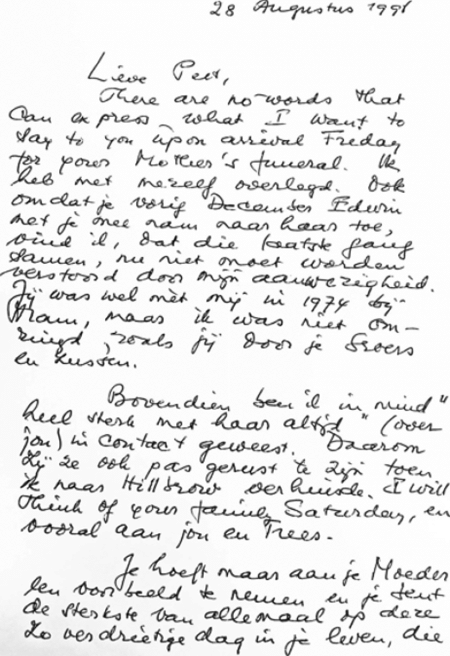 28 Augustus 1991
Lieve Peet,
There are no words that
can express what I want to
say to you upon arrival Friday
for youre Mother's funeral. Ik
heb met mezelf overlegd. Ook
omdat je vorig December Edwin
met je mee nam naar haar toe,
vind ik, dat die laatste gang
samen, nu niet moet worden
verstoord door mijn aanwezigheid.
Jij was wel mèt mij in 1974 bij
Mam, maar ik was niet om-
ringd, zoals jij door je broers
en zussen.
Bovendien ben ik in mind"
heel sterk met haar altijd "(over
jou) in contact geweest. Daarom
zij ze ook pas gerust te zijn toen
ik naar Hillbrow verhuisde. I will
think of youre family Saturday, en
vooral aan jou en Trees.
Je hoeft maar aan je Moeder
een voorbeeld te nemen en je bent
de sterkste van allemaal op deze
zo verdrietige dag in je leven, die